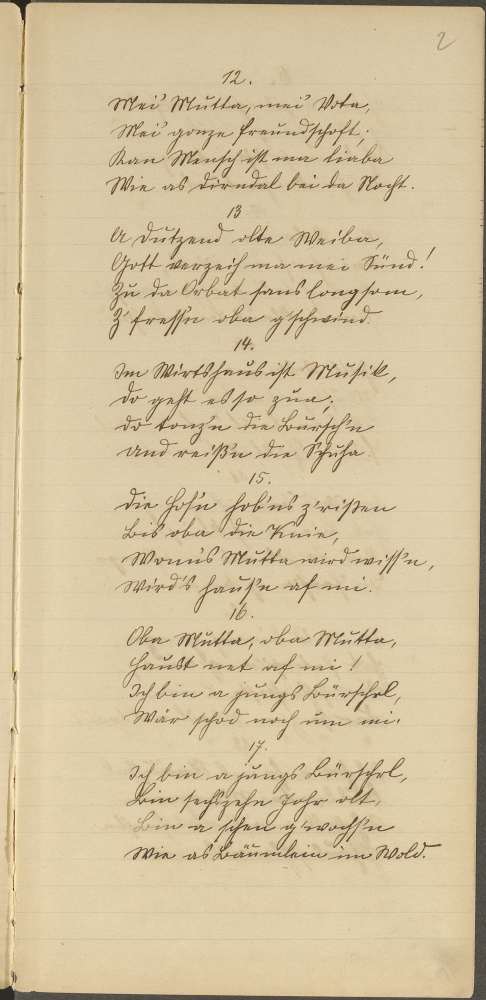 2
12.
Mei' Mutta, mei' Vota,
Mei' gonze Freundschoft,
Kan Mensch ist ma liaba
Wie as Dirndal bei da Nocht.
13
A Dutzend olte Weiba,
Gott verzeih ma mei Sünd!
Zu da Orbat sans longsom,
Z' fress'n oba g'schwind.
14.
Im Wirtshaus ist Musik,
Do geht es so zua;
Do tonz'n die Bursch'n
Und reiß'n die Schuha.
15.
Die Hos'n hob'ns z'rissen
Bis oba die Knie,
Wonn's Mutta wird wiss'n,
Wird's haus'n af mi.
16.
Oba Mutta, oba Mutta,
Haust net af mi!
Ich bin a jungs Bürscherl,
Wär schod noch um mi.
17.
Ich bin a jungs Bürscherl,
Bin sechzehn Johr olt,
Bin a schen g'wochs'n
Wie as Bäumlein im Wold.